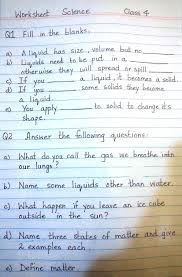 Worksheet Science Class 4
Q1 Fill in the blanks.
a) A liquid has size, volume but no
b) Liquids need to be put in a
otherwise they will spread or spill
c) If you a liquid, it becomes a solid.
d) If you some solids they become
a liquid.
e) You apply to solid to change its
shape.
Q2 Answer the following questions:
a) What do you call the gas we breathe into
our lungs?
b) Name some liquids other than water.
c) What happen if you leave an ice cube
outside in the sun?
d) Name three states of matter and give
2 examples each.
e) Define matter